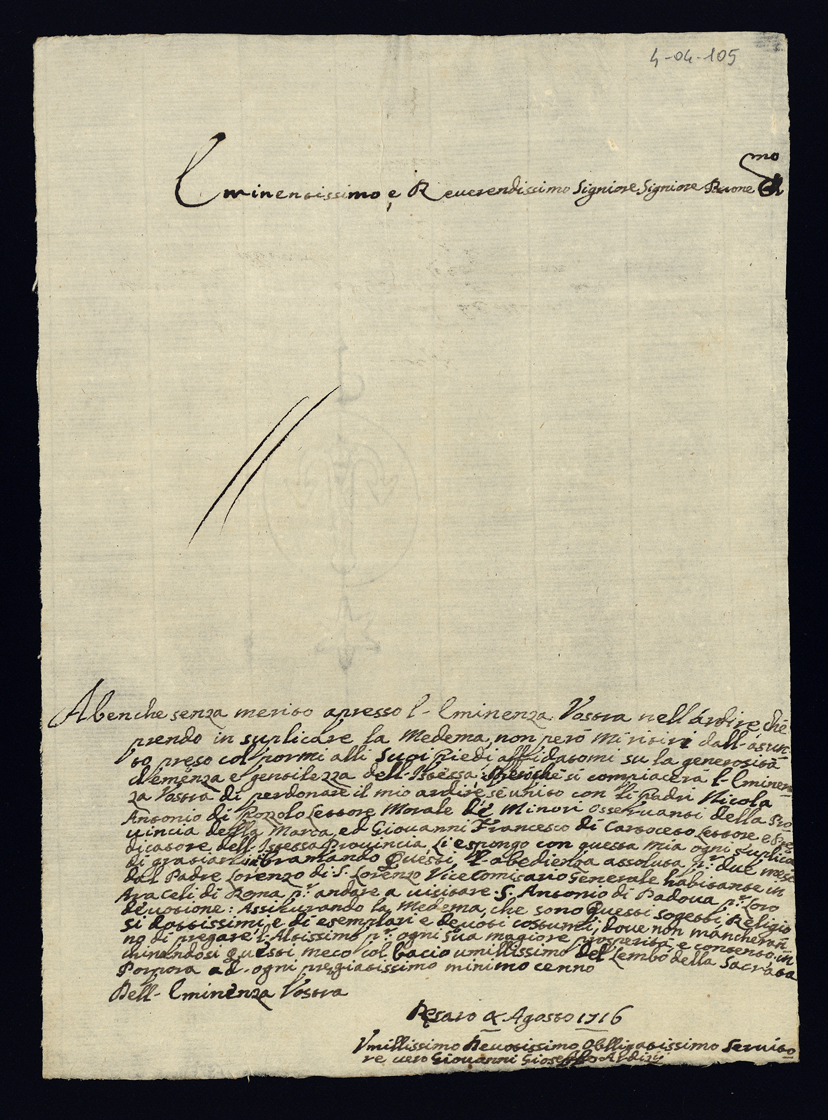 4-04-105
Eminentissimo e Reverendissimo Signiore Signiore Prone
mo
Abenche senza merito apresso l- Eminenza Vostra nell'ardire, che
prendo in suplicare la Medema, non però mi ritiri dall-asun-
to preso col pormi alli Suoi piedi affidatomi su la generosità
clemenza e gentilezza dell-Istessa: perche si compiacerà l-Eminen
za Vostra di perdonare il mio ardire se unito con di Padri Nicola
Antonio di Lettore Morale de Minori Osservanti della Pro
vincia della Marca, ed Giovanni Francesco di Cartoceto Lettore e Pre
dicatore dell-Istessa Provincia, Li espongo con questa mia ogni suplica
di gratiarli bramando questi, l'abedienza assoluta p. due mesi
dal Padre Lorenzo di S. Lorenzo Vicecomisario Generale habitante in
Araceli di Roma p. andare a visitare S. Antonio di Padova p. loro
devotione: Assicurando la Medema, che sono questi sogetti Religio
si dottissimi, e di esemplari e devoti costumi, dove non mancheran
no di pregare l-Altissimo p. ogni sua magiore prosperità, e contento, in
chinandosi questi meco col bacio umilissimo del Lembo della Sacrata
Porpora ad- ogni pregiatissimo minimo cenno
Dell- Eminenza Vostra
Pesaro Agosto 1716
Vmillissimo Devotissimo Obbligatissimo Servito
re vero Giovanni Gioseffo Ardizi